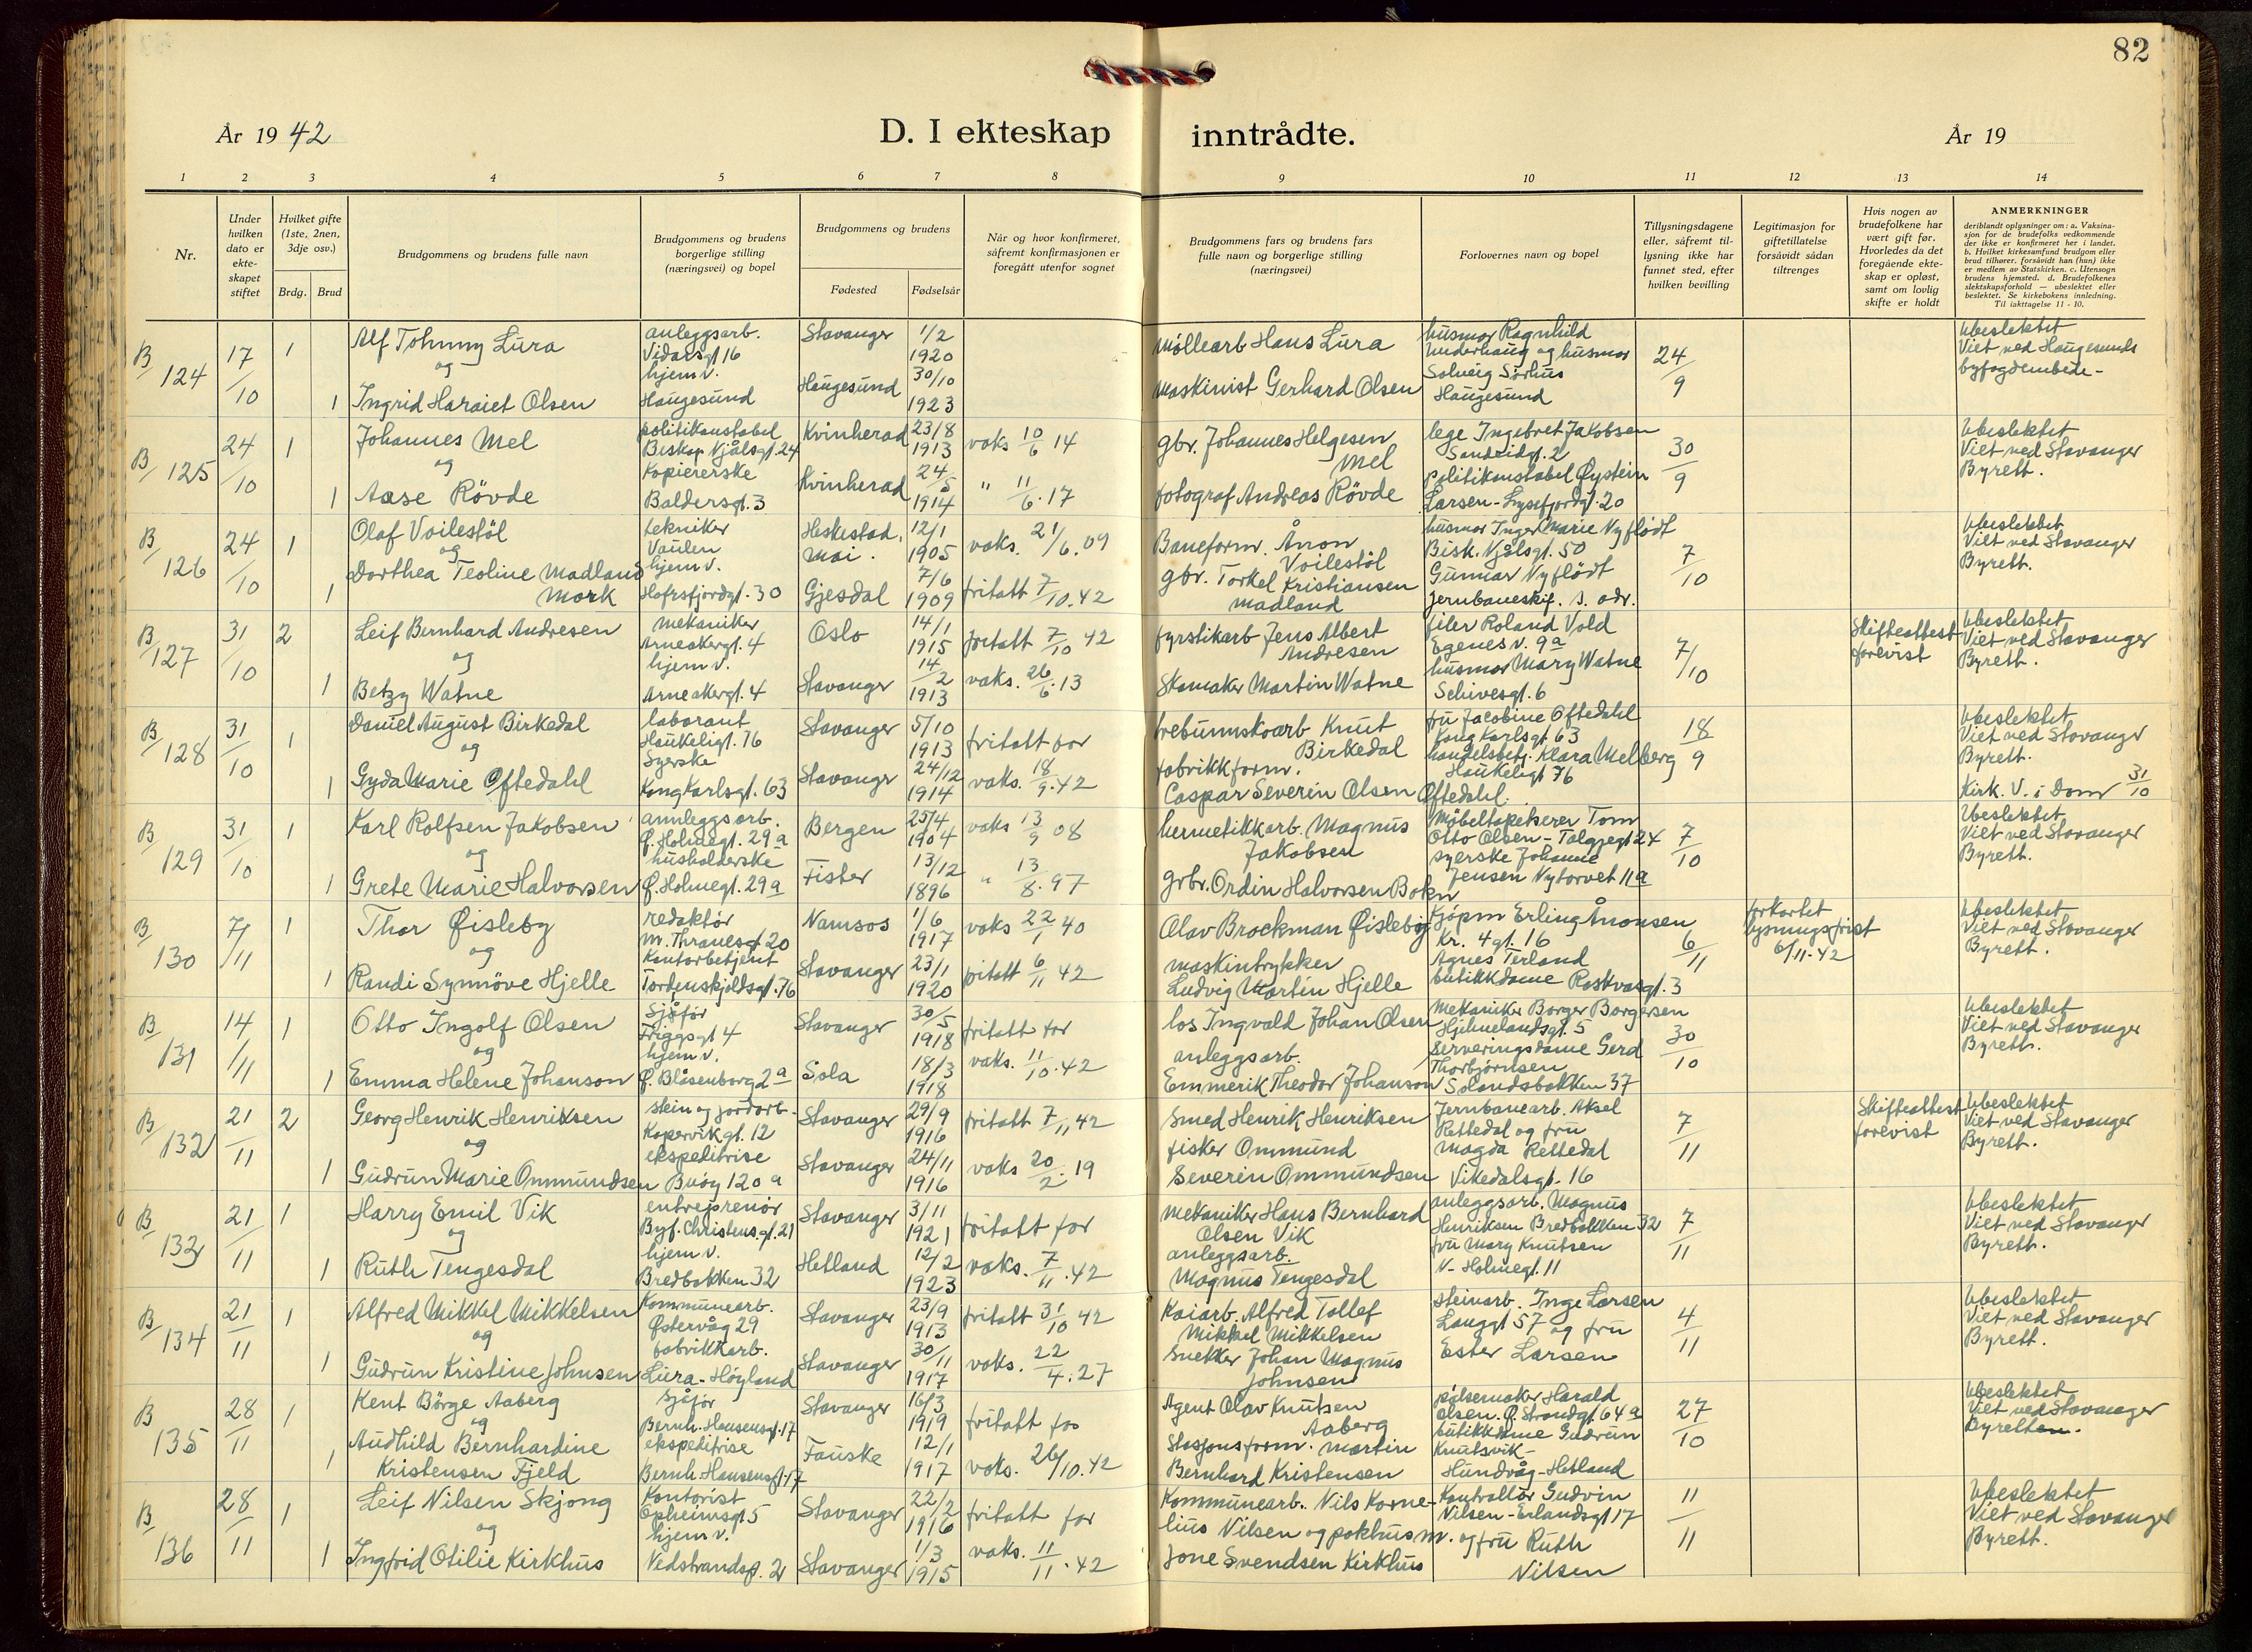 82
År 1942
D. I ekteskap inntrådte.
År 19
1 2 3 4 5 6 7 8 9 10 11 12 13 14
Nr.
Under hvilken dato er ekte-skapet stiftet
Hvilket gifte (1ste, 2nen, 3dje osv.)
Brdg. Brud
Brudgommens og brudens fulle navn
Brudgommens og brudens borgerlige stilling (næringsvei) og bopel
Brudgommens og brudens
Fødested Fødselsår
Når og hvor konfirmeret, såfremt konfirmasjonen er foregått utenfor sognet
Brudgommens fars og brudens fars fulle navn og borgerlige stilling (næringsvei)
Forlovernes navn og bopel
Tillysningsdagene eller, såfremt til-lysning ikke har funnet sted, efter hvilken bevilling
Legitimasjon for giftetillatelse forsåvidt sådan tiltrenges
Hvis nogen av brudefolkene har vært gift før. Hvorledes da det foregående ekte-skap er opløst, samt om lovlig skifte er holdt
ANMERKNINGER
deriblandt oplysninger om: a. Vaksina-
sjon for de brudefolks vedkommende
der ikke er konfirmeret her i landet.
b. Hvilket kirkesamfund brudgom eller
brud tilhører, forsåvidt han (hun) ikke
er medlem av Statskirken. c. Utensogn
brudens hjemsted. d. Brudefolkenes
slektskapsforhold — ubeslektet eller
beslektet. Se kirkebokens innledning.
Til iakttagelse 11 - 10.
B/124 17/10 1 1
Alf Johnny Lura
og
Ingrid Haraiet Olsen
anleggsarb.
Vidarsgt 16
hjem v.
Haugesund
Stavanger 1/2 1920
Haugesund 30/10 1923
møllearb Hans Lura
maskinist Gerhard Olsen
husmor Ragnhild
Underhaug og husmor
Solveig Sørhus
Haugesund
24/9
Ubeslektet
Viet ved Haugesunds
byfogdembede-
B/125 24/10 1 1
Johannes Mel
og
Aase Rövde
politikonstabel
Biskop Njålsgt. 24
Kopiererske
Baldersgt. 3
Kvinherad 23/8 1913
Kvinherad 24/5 1914
vaks 10/6 14
" 11/6. 17
gbr. Johannes Helgesen
Mel
fotograf Andreas Rövde
lege Ingebret Jakobsen
Sandeidgt. 2
politikonstabel Øystein
Larsen - Lysefjordgt. 20
30/9
Ubeslektet
Viet ved Stavanger
Byrett.
B/126 24/10 1 1
Olaf Voilestöl
og
Dorthea Teoline Madland
Mork
tekniker
Vaulen
hjem v.
Hafrsfjordgt. 30
Heskestad, 12/1 1905
Gjesdal 7/6 1909
vaks. 21/6. 09
fritatt 7/10. 42
Baneform. Ånon
Voilestöl
gbr. Torkel Kristiansen
Madland
husmor Inger Marie Nyflödt
Bisk. Njålsgt. 50
Gunnar Nyflödt
Jernbaneskif. s. adr.
7/10
Ubeslektet
Viet ved Stavanger
Byrett.
B/127 31/10 2 1
Leif Bernhard Andresen
og
Betzy Watne
mekaniker
Arneakergt. 4
hjem v.
Arneakergt. 4
Oslo 14/1 1915
Stavanger 14/2 1913
fritatt 7/10 42
vaks. 26/6. 13
fyrstikarb Jens Albert
Andresen
Skomaker Martin Watne
filer Roland Vold
Egenes v. 9a
husmor Mary Watne
Schivesgt. 6
7/10
Skifteattest
forevist
Ubeslektet
Viet ved Stavanger
Byrett.
B/128 31/10 1 1
Daniel August Birkedal
og
Gyda Marie Oftedahl
laborant
Haukeligt. 76
Syerske
Kong Karlsgt. 63
Stavanger 5/10 1913
Stavanger 24/12 1914
fritatt for
vaks. 18/9. 42
trebunnskoarb Knut
Birkedal
fabrikkform.
Caspar Severin Olsen Oftedahl.
fru Jacobine Oftedahl
Kong Karlsgt. 63
handelsbetj. Klara Melberg
Haukeligt 76
18/9
Ubeslektet
Viet ved Stavanger
Byrett.
Kirk. V. i Dom 31/10
B/129 31/10 1 1
Karl Rolfsen Jakobsen
og
Grete Marie Halvorsen
annleggsarb.
Ø. Holmegt. 29a
husholderske
Ø. Holmegt. 29a
Bergen 25/4 1904
Fister 13/12 1896
vaks 13/9 08
" 13/8. 97
hermetikkarb. Magnus
Jakobsen
grbr. Ordin Halvorsen Bokn
Möbeltapetserer Tom
Otto Olsen - Talgjegt 24
syerske Johanne
Jensen Nytorvet 11a
7/10
Ubeslektet
Viet ved Stavanger
Byrett.
B/130 7/11 1 1
Thor Øisleby
og
Randi Synnöve Hjelle
redaktör
M. Thranesgt 20
Kontorbetjent
Tordenskjoldsgt. 76
Namsos 1/6 1917
Stavanger 23/1 1920
vaks 22/1 40
fritatt 6/11 42
Olav Brockman Øisleby
maskintrykker
Ludvig Marten Hjelle
Kjöpm Erling Ånonsen
Kr. 4gt. 16
Agnes Terland
butikkdame Roskvasgt. 3
6/11
forkortet
lysningsfrist
6/11-42
Ubeslektet
Viet ved Stavanger
Byrett.
B/131 14/11 1 1
Otto Ingolf Olsen
og
Emma Helene Johanson
Sjåför
Friggsgt 4
hjem v.
Ø. Blåsenborg 2a
Stavanger 30/5 1918
Sola 18/3 1918
fritatt for
vaks. 11/10. 42
los Ingvald Johan Olsen
anleggsarb.
Emmerik Theodor Johanson
Mekaniker Borger Borgersen
Hjelmelandsgt. 5
Serveringsdame Gerd
Thorbjörnsen
Solandsbakken 37
30/10
Ubeslektet
Viet ved Stavanger
Byrett.
B/132 21/11 2 1
Georg Henrik Henriksen
og
Gudrun Marie Ommundsen
stein og jordarb.
Kopervikgt. 12
ekspeditrise
Buöy 120a
Stavanger 29/9 1916
Stavanger 24/11 1916
fritatt 7/11 42
vaks 20/2. 19
Smed Henrik Henriksen
fisker Ommund
Severin Ommundsen
Jernbanearb. Aksel
Rettedal og fru
Magda Rettedal
Vikedalsgt. 16
7/11
Skifteattest
forevist
Ubeslektet
Viet ved Stavanger
Byrett.
B/133 21/11 1 1
Harry Emil Vik
og
Ruth Tengesdal
entreprenör
Byf. Christens.gt. 21
hjem v.
Bredbakken 32
Stavanger 3/11 1921
Hetland 12/2 1923
fritatt for
vaks. 7/11. 42
mekaniker Hans Bernhard
Olsen Vik
anleggsarb.
Magnus Tengesdal
anleggsarb. Magnus
Henriksen Bredbakken 32
fru Mary Knutsen
N- Holmegt. 11
7/11
Ubeslektet
Viet ved Stavanger
Byrett.
B/134 21/11 1 1
Alfred Mikkel Mikkelsen
og
Gudrun Kristine Johnsen
Kommunearb.
Østervåg 29
fabrikkarb.
Lura - Höyland
Stavanger 23/9 1913
Stavanger 30/11 1917
fritatt 31/10 42
vaks. 22/4. 27
Kaiarb. Alfred Tollef
Mikkel Mikkelsen
Snekker Johan Magnus
Johnsen
steinarb. Inge Larsen
Langgt 57 og fru
Ester Larsen
4/11
Ubeslektet
Viet ved Stavanger
Byrett.
B/135 28/11 1 1
Kent Börge Aaberg
og
Audhild Bernhardine
Kristensen Fjeld
sjåför
Bernh. Hansensgt. 17
ekspeditrise
Bernh. Hansensgt. 17
Stavanger 16/3 1919
Fauske 12/1 1917
fritatt for
vaks. 26/10. 42
Agent Olav Knutsen
Aaberg
Stasjonsform. Martin
Bernhard Kristensen
pölsemaker Harald
Olsen. Ø. Strandgt. 64a
butikkdame Gudrun
Knutsvik -
Hundvåg - Hetland
27/10
Ubeslektet
Viet ved Stavanger
Byretten.
B/136 28/11 1 1
Leif Nilsen Skjong
og
Ingfrid Otilie Kirkhus
Kontorist
Opheimsgt 5
hjem v.
Vedstrandsg. 2
Stavanger 22/2 1916
Stavanger 1/3 1915
fritatt for
vaks. 11/11. 42
Kommunearb. Nils Korne-
lius Nilsen og pakhusm.
Jone Svendsen Kirkhus
Kontrollör Gudvin
Nilsen - Erlandsgt 17
og fru Ruth
Nilsen
11/11
Ubeslektet
Viet ved Stavanger
Byrett.